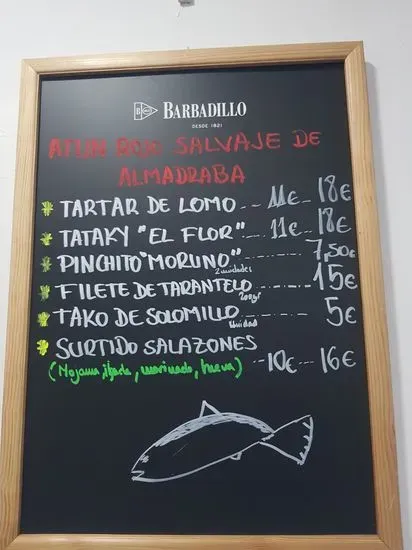 BARBADILLO
DESDE 1821
ATUN ROJO SALVAJE DE
ALMADRABA
TARTAR DE LOMO -- 11€ 18€
TATAKY "EL FLOR" --- 11€ 18€
PINCHITO "MORUNO" 7,50€
2 unidades
FILETE DE TARANTELO 15€
200gr
TAKO DE SOLOMILLO 5€
Unidad
SURTIDO SALAZONES
(Mojama, ijada, marinado, hueva) -10€ - 16€